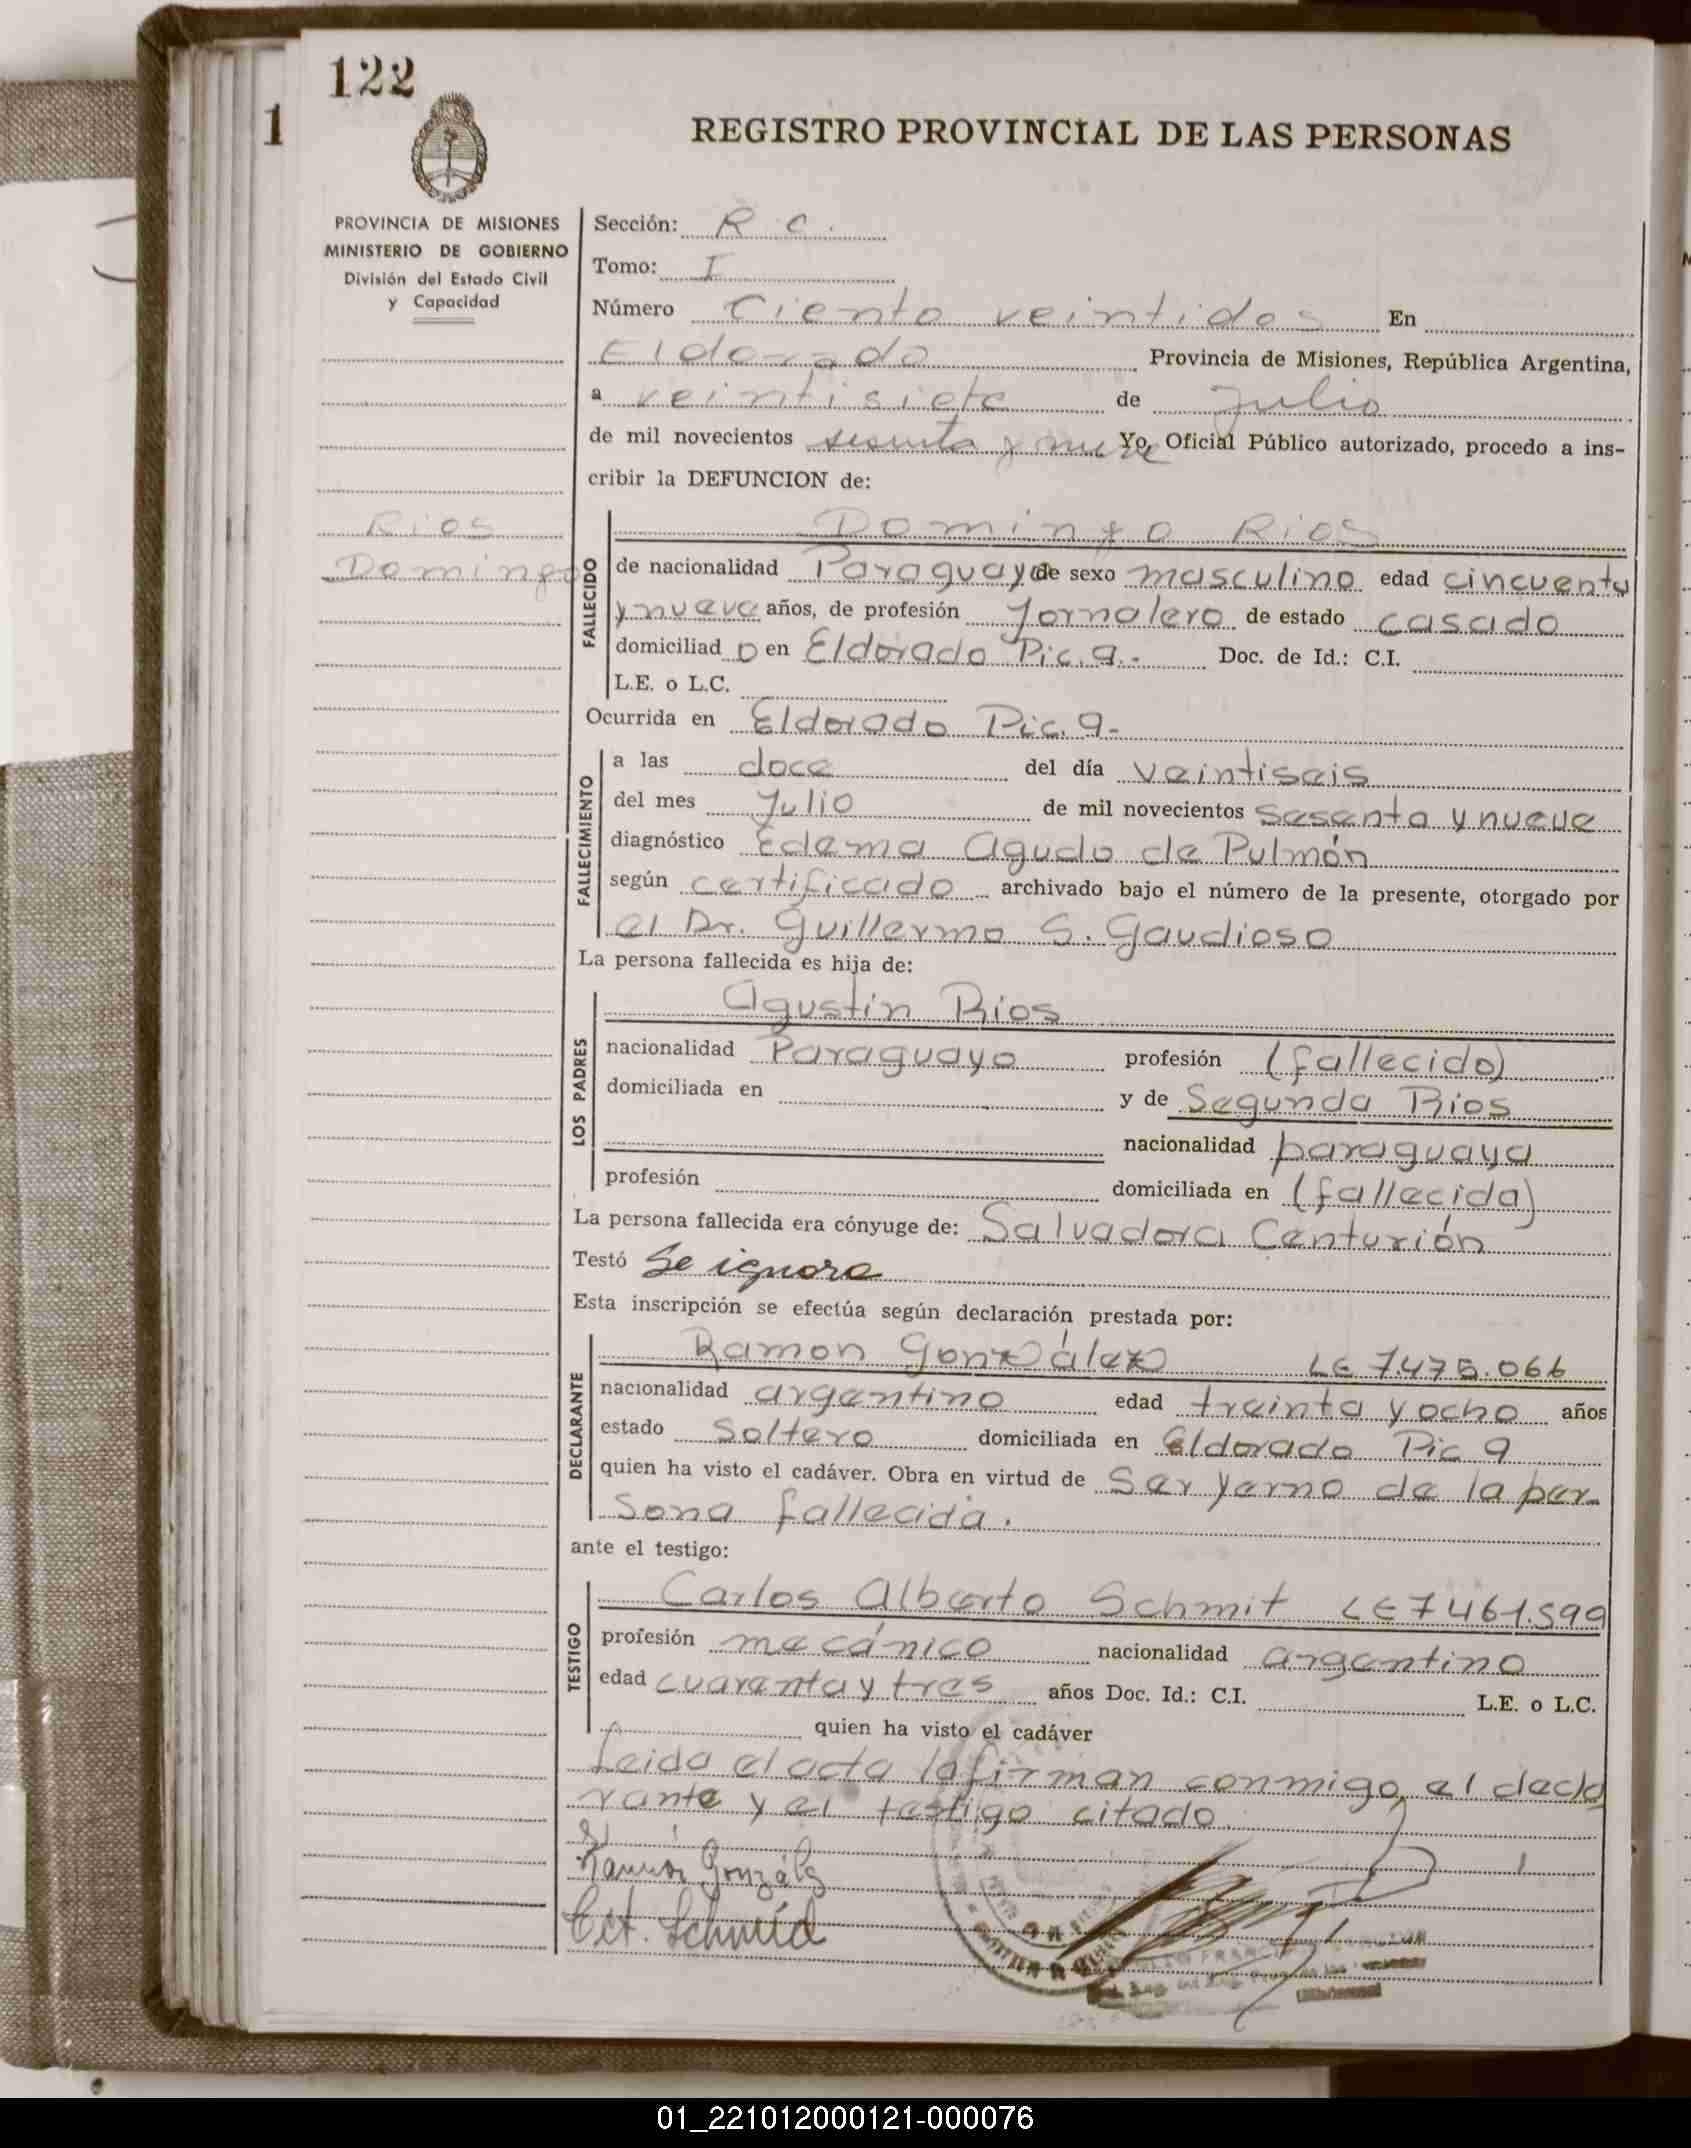 122
1
REGISTRO PROVINCIAL DE LAS PERSONAS
PROVINCIA DE MISIONES
MINISTERIO DE GOBIERNO
División del Estado Civil
y Capacidad
Rios
Domingo
Sección: R C.
Tomo: I
Número Ciento veintidos En
Eldorado Provincia de Misiones, República Argentina,
a veintisiete de Julio
de mil novecientos sesenta y nueve Yo, Oficial Público autorizado, procedo a ins-
cribir la DEFUNCION de:
FALLECIDO
Domingo Rios
de nacionalidad Paraguaya de sexo masculino edad cincuenta
y nueve años, de profesión Jornalero de estado casado
domiciliad o en Eldorado Pic. 9.- Doc. de Id.: C.I.
L.E. o L.C.
Ocurrida en Eldorado Pic. 9-
FALLECIMIENTO
a las doce del día veintiseis
del mes Julio de mil novecientos sesenta y nueve
diagnóstico Edema Agudo de Pulmón
según certificado archivado bajo el número de la presente, otorgado por
el Dr. Guillermo S. Gaudioso
La persona fallecida es hija de:
LOS PADRES
Agustin Rios
nacionalidad Paraguayo profesión (fallecido)
domiciliada en y de Segunda Rios
nacionalidad paraguaya
profesión domiciliada en (fallecida)
La persona fallecida era cónyuge de: Salvadora Centurión
Testó Se ignora
Esta inscripción se efectúa según declaración prestada por:
DECLARANTE
Ramon González LE 7.475.066
nacionalidad argentino edad treinta y ocho años
estado Soltero domiciliada en Eldorado Pic 9
quien ha visto el cadáver. Obra en virtud de Ser yerno de la per-
sona fallecida.
ante el testigo:
TESTIGO
Carlos Alberto Schmit LE 7461.599
profesión mecánico nacionalidad argentino
edad cuarenta y tres años Doc. Id.: C.I. L.E. o L.C.
quien ha visto el cadáver
Leida el acta la firman conmigo, el decla
rante y el testigo citado.
Ramon González
Schmid
01_221012000121-000076